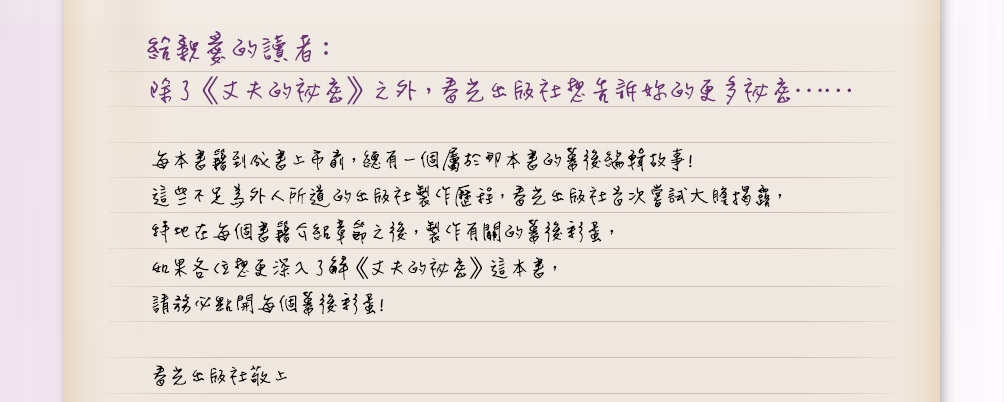 給親愛的讀者：
除了《丈夫的祕密》之外，春光出版社想告訴妳的更多祕密……
每本書籍到成書上市前，總有一個屬於那本書的幕後編輯故事！
這些不足為外人所道的出版社製作歷程，春光出版社首次嘗試大膽揭露，
特地在每個書籍介紹章節之後，製作有關的幕後彩蛋，
如果各位想更深入了解《丈夫的祕密》這本書，
請務必點開每個幕後彩蛋！
春光出版社敬上